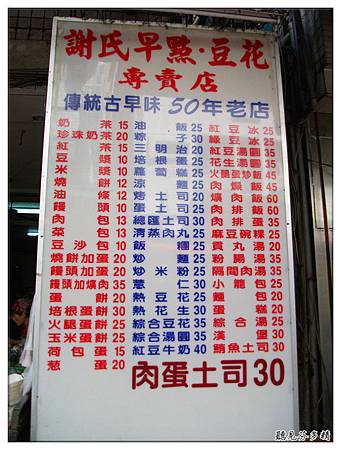 謝氏早點·豆花
專賣店
傳統古早味 50年老店
奶茶 15
珍珠奶茶 20
紅茶 10
豆漿 10
米漿 10
燒餅 12
油條 12
饅頭 10
肉包 13
菜包 13
豆沙包 10
燒餅加蛋 20
饅頭加蛋 20
饅頭加爌肉 35
蛋餅 20
培根蛋餅 30
火腿蛋餅 25
玉米蛋餅 25
荷包蛋 15
葱蛋 20
油飯 25
粽子 25
三明治 20
培根蛋 25
蘿蔔糕 25
涼麵 25
烤土司 20
蛋土司 25
總匯土司 30
清蒸肉丸 25
飯糰 25
炒麵 25
炒米粉 25
薏仁 30
熱豆花 25
熱花生 30
綜合豆花 35
綜合湯圓 35
紅豆牛奶 40
紅豆冰 25
綠豆冰 25
紅豆湯圓 35
花生湯圓 35
火腿蛋炒飯 45
肉燥飯 45
爌肉飯 60
肉排飯 60
肉排蛋 35
麻豆碗粿 25
貢丸湯 20
粉腸湯 35
隔間肉湯 35
小籠包 25
麵包 20
蛋糕 20
綜合湯 25
漢堡 30
鮪魚土司 30
肉蛋土司 30